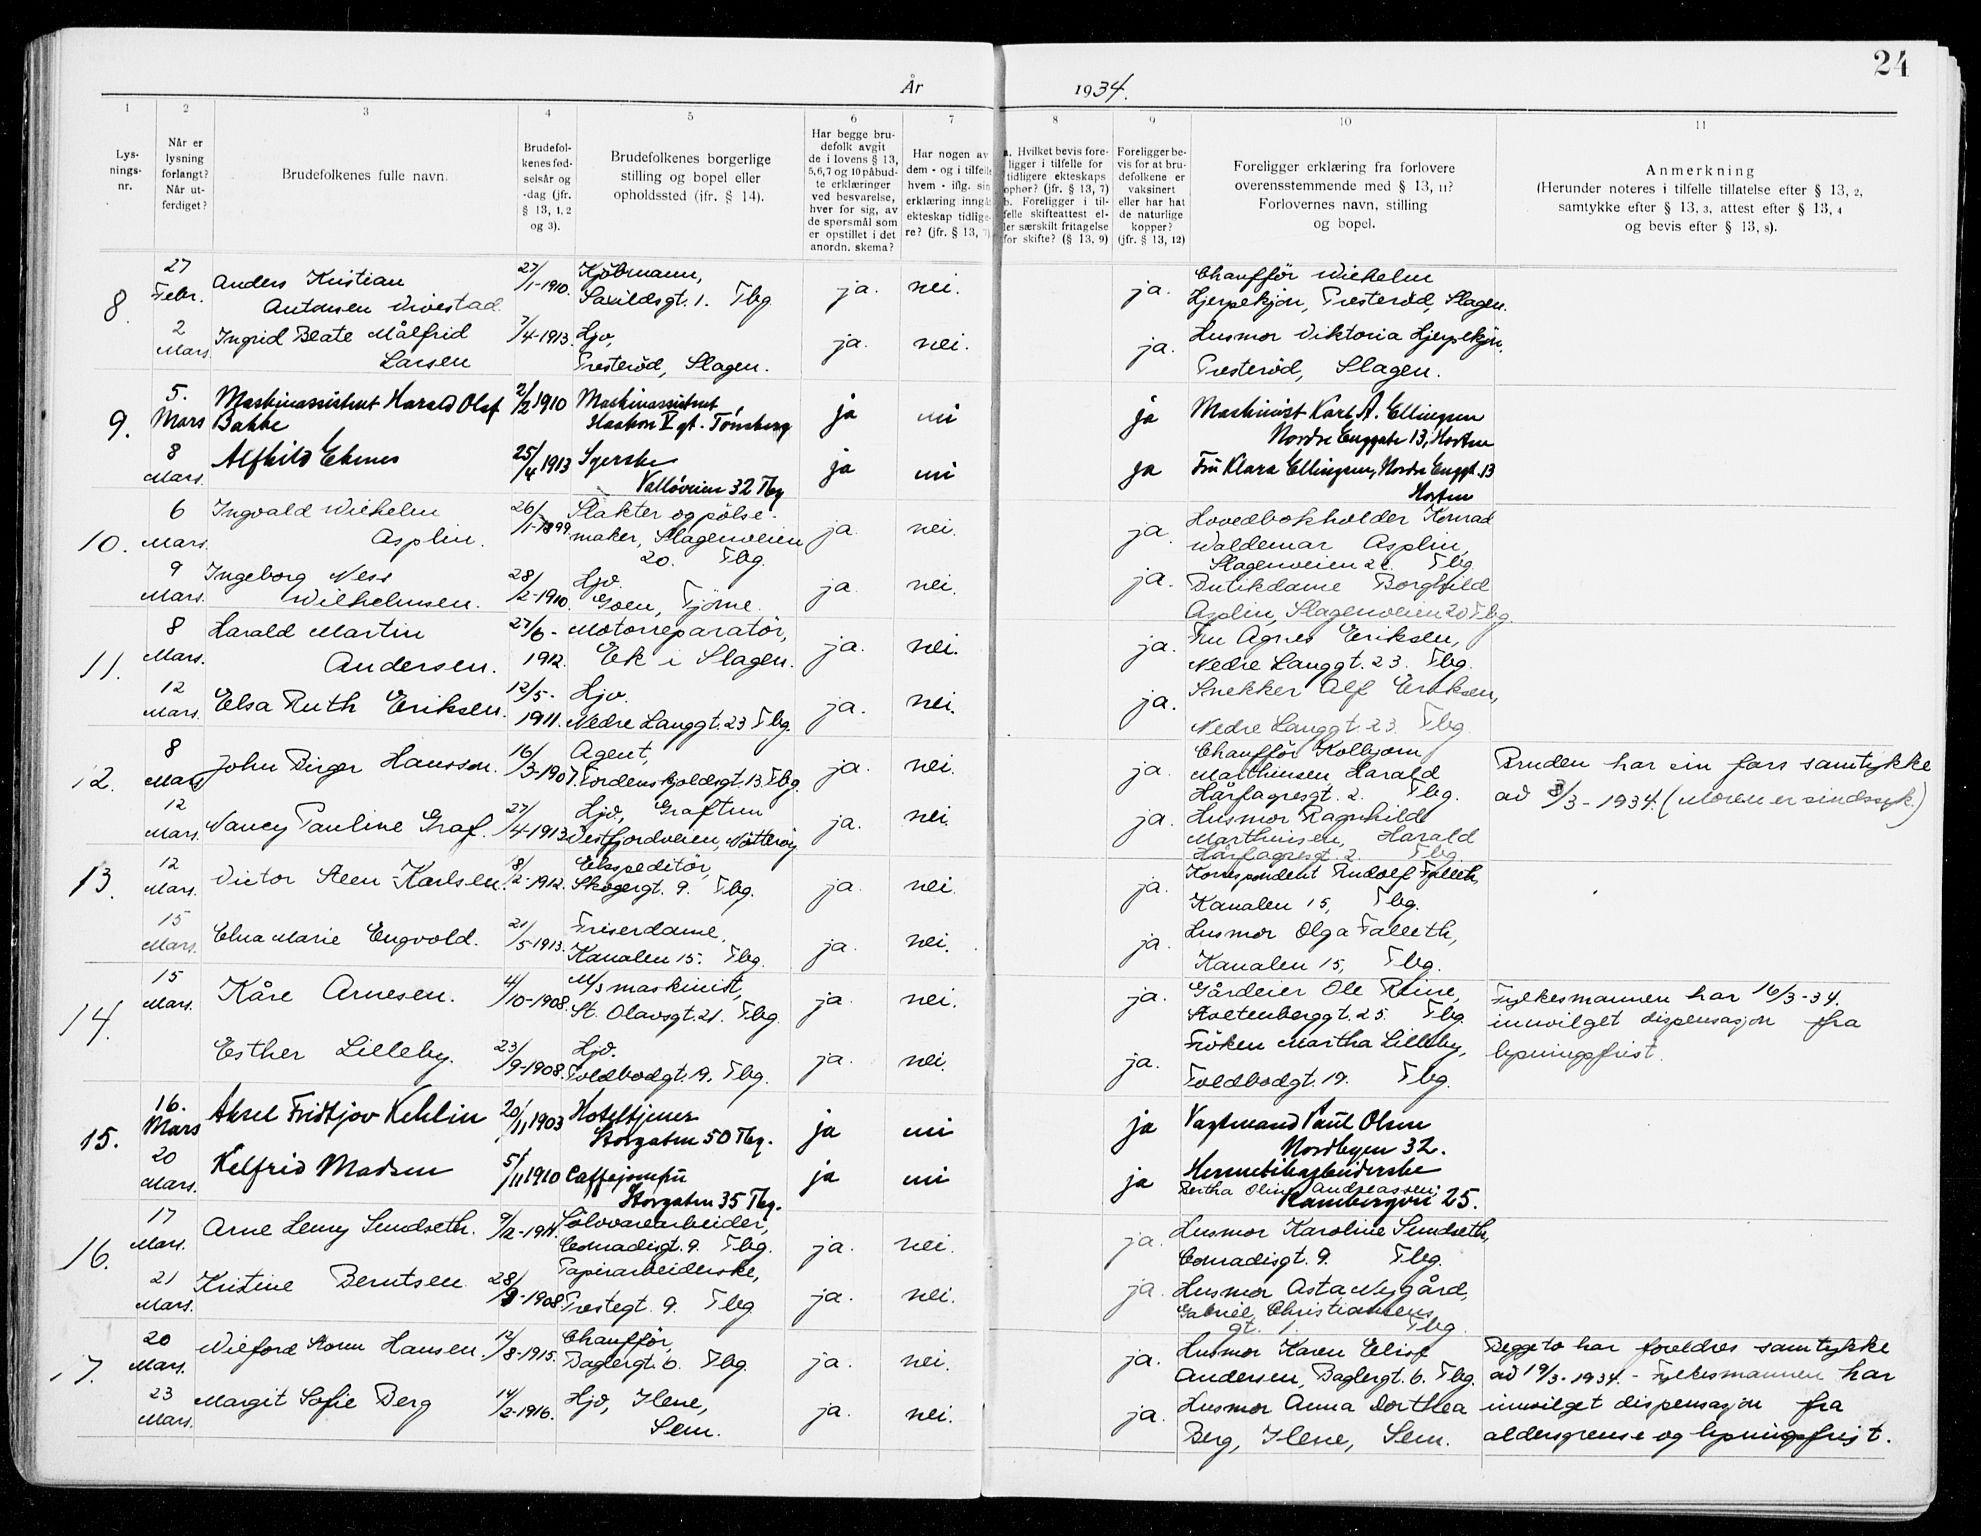 24
År 1934.
1 2 3 4 5 6 7 8 9 10 11
Lys-
nings-
nr.
Når er
lysning
forlangt?
Når ut-
ferdiget?
Brudefolkenes fulle navn.
Brudefol-
kenes fød-
selsår og
-dag (jfr.
§ 13, 1, 2
og 3).
Brudefolkenes borgerlige
stilling og bopel eller
opholdssted (jfr. § 14).
Har begge bru-
defolk avgit
de i lovens § 13,
5,6,7 og 10 påbud-
te erklæringer
ved besvarelse,
hver for sig, av
de spørsmål som
er opstillet i det
anordn. skema?
Har nogen av
dem - og i tilfelle
hvem - iflg. sin
erklæring inngåt
ekteskap tidlige-
re? (jfr. § 13, 7)
a. Hvilket bevis fore-
ligger i tilfelle for
tidligere ekteskaps
ophør? (jfr. § 13, 7)
b. Foreligger i til-
felle skifteattest el-
ler særskilt fritagelse
for skifte? (§ 13, 9)
Foreligger be-
vis for at bru-
defolkene er
vaksinert
eller har hat
de naturlige
kopper?
(jfr. § 13, 12)
Foreligger erklæring fra forlovere
overensstemmende med § 13, 11?
Forlovernes navn, stilling
og bopel.
Anmerkning
(Herunder noteres i tilfelle tillatelse efter § 13, 2,
samtykke efter § 13, 3, attest efter § 13, 4
og bevis efter § 13, 8).
8.
27
Febr.
Anders Kristian
Antonsen Vivestad.
27/1-1910.
Kjøbmann,
Savildsgt. 1. Tbg.
ja. nei. ja.
Chauffør Wilhelm
Hjerpekjøn, Presterød, Slagen.
2
Mars.
Ingrid Beate Målfrid
Larsen
7/4-1913.
Hjv,
Presterød, Slagen.
ja. nei. ja.
Husmor Viktoria Hjerpekjøn,
Presterød, Slagen.
9.
5.
Mars
Maskinassistent Harald Olaf
Bakke
2/2 1910
Maskinassistent,
Haakon V gt. Tønsberg
ja nei ja
Maskinist Karl A. Ellingsen
Nordre Enggate 13, Horten
8
Mars.
Alfhild Ekenes
25/4 1913
Syerske
Valløveien 32 Tbg
ja nei ja
Fru Klara Ellingsen, Nordre Enggt. 13
Horten
10.
6
Mars.
Ingvald Wilhelm
Asplin.
26/1-1899.
Slakter og pølse-
maker, Slagenveien
20. Tbg.
ja. nei. ja.
Hovedbokholder Konrad
Waldemar Asplin,
Slagenveien 20. Tbg.
9
Mars.
Ingeborg Ness
Wilhelmsen.
28/2-1910.
Hjv.
Goen, Tjøme.
ja. nei. ja.
Butikdame Borghild
Asplin, Slagenveien 20 Tbg.
11.
8
Mars.
Harald Martin
Andersen.
27/6-
1912.
Motorreparatør,
Ek i Slagen.
ja. nei. ja.
Fru Agnes Eriksen,
Nedre Langgt. 23. Tbg.
12
Mars.
Elsa Ruth Eriksen.
12/5-
1911.
Hjv.
Nedre Langgt. 23 Tbg.
ja. nei. ja.
Snekker Alf Eriksen,
Nedre Langgt. 23. Tbg.
12.
8
Mars
John Birger Hansson.
16/3-1907
Agent,
Tordenskjoldsgt. 13 Tbg.
ja. nei. ja.
Chauffør Kolbjørn
Marthinsen Harald
Hårfagresgt. 2. Tbg.
Bruden har sin fars samtykke
ad 8/3-1934. (Moren er sindssyk.)
12
Mars.
Nancy Pauline Graf.
27/4-1913
Hjv, Graftun
Vestfjordveien, Nøtterøy
ja. nei. ja.
Husmor Ragnhild
Marthinsen, Harald
Hårfagresgt. 2. Tbg.
13.
12
Mars.
Victor Steen-Karlsen.
8/2-1912.
Ekspeditør,
Skogergt. 9. Tbg.
ja. nei. ja.
Korrespondent Rudolf Falleth,
Kanalen 15, Tbg.
15
Mars.
Elna Marie Engvold.
21/5-1913.
Friserdame,
Kanalen 15. Tbg.
ja. nei. ja.
Husmor Olga Falleth,
Kanalen 15, Tbg.
14.
15
Mars.
Kåre Arnesen.
4/10-1908.
M/s maskinist,
St. Olavsgt. 21. Tbg.
ja. nei. ja.
Gårdeier Ole Reine,
Stoltenberggt. 25. Tbg.
Fylkesmannen har 16/3-34.
innvilget dispensasjon fra
lysningsfrist.
Esther Lilleby.
23/9-1908.
Hjv.
Toldbodgt. 19. Tbg.
ja. nei. ja.
Frøken Martha Lilleby,
Toldbodgt. 19. Tbg.
15.
16.
Mars
Aksel Fridtjov Kehlin
20/11 1903
Hoteltjener
Storgaten 50 Tbg.
ja nei ja
Vagtmand Paul Olsen
Nordbyen 32.
20
Mars.
Helfrid Madsen
5/11 1910
Caffejomfru
Storgaten 35 Tbg.
ja nei ja
Hermetikarbeiderske
Bertha Oline Andreassen;
Rambergvei 25.
16.
17
Mars.
Arne Lenny Sundseth.
9/2-1911.
Sølvvarearbeider,
Conradisgt. 9. Tbg.
ja. nei. ja.
Husmor Karoline Sundseth,
Conradisgt. 9. Tbg.
21
Mars.
Kristine Berntsen
28/9-1908
Papirarbeiderske,
Prestegt. 9. Tbg
ja. nei. ja.
Husmor Asta Nygård,
Gabriel Christiansens
gt. 1. Tbg.
17.
20
Mars.
Wilford Storm Hansen.
12/8-1915.
Chauffør,
Baglergt. 6. Tbg.
ja. nei. ja.
Husmor Karen Elise
Andersen, Baglergt. 6. Tbg.
Begge to har foreldres samtykke
ad 19/3-1934. - Fylkesmannen har
innvilget dispensasjon fra
aldersgrense og lysningsfrist.
23
Mars.
Margit Sofie Berg
14/2-1916.
Hjv, Ilene,
Sem.
ja. nei. ja.
Husmor Anna Dorthea
Berg, Ilene, Sem.